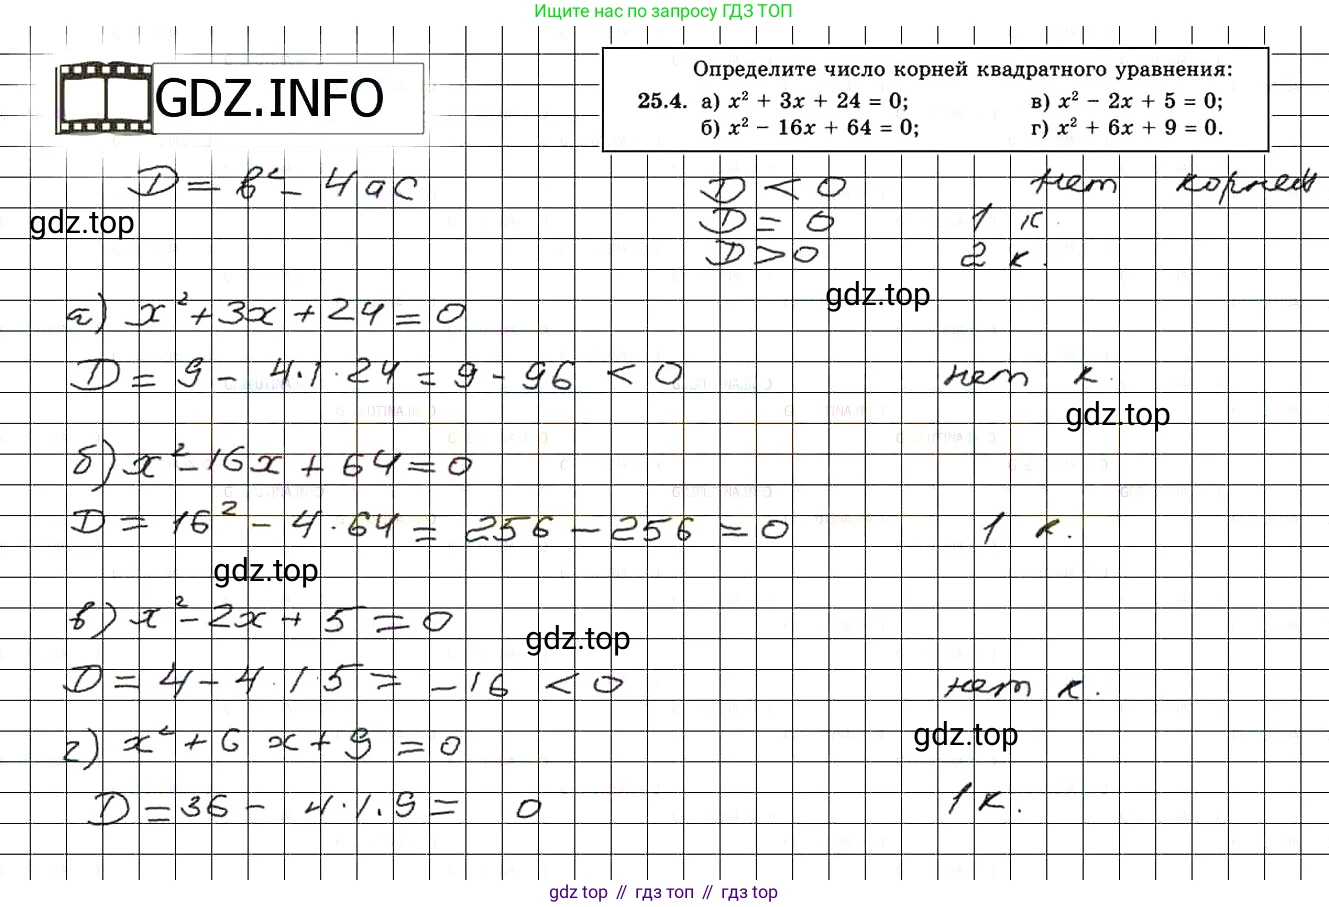 Ищите нас по запросу ГДЗ ТОП
GDZ.INFO
Определите число корней квадратного уравнения:
25.4. а) x² + 3x + 24 = 0; в) x² − 2x + 5 = 0;
б) x² − 16x + 64 = 0; г) x² + 6x + 9 = 0.
D = b² − 4ac D < 0 нет корней
gdz.top D = 0 1 к.
D > 0 2 к.
gdz.top
а) x² + 3x + 24 = 0
D = 9 − 4·1·24 = 9 − 96 < 0 нет к.
gdz.top
б) x² − 16x + 64 = 0
D = 16² − 4·64 = 256 − 256 = 0 1 к.
gdz.top
в) x² − 2x + 5 = 0
gdz.top
D = 4 − 4·1·5 = −16 < 0 нет к.
gdz.top
г) x² + 6x + 9 = 0
D = 36 − 4·1·9 = 0 1 к.
gdz top // гдз топ // гдз top